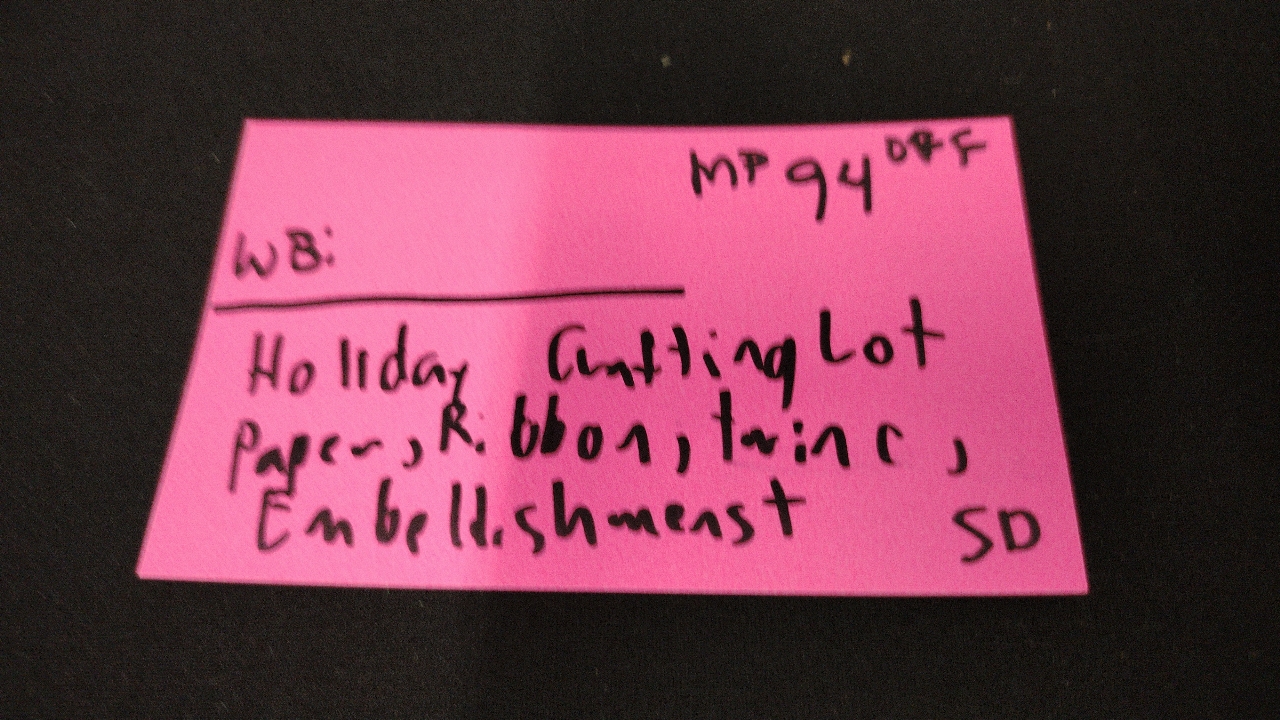 MP 94
WB:
Holiday Crafting Lot
Paper, Ribbon, twine,
Embellishmenst
SD